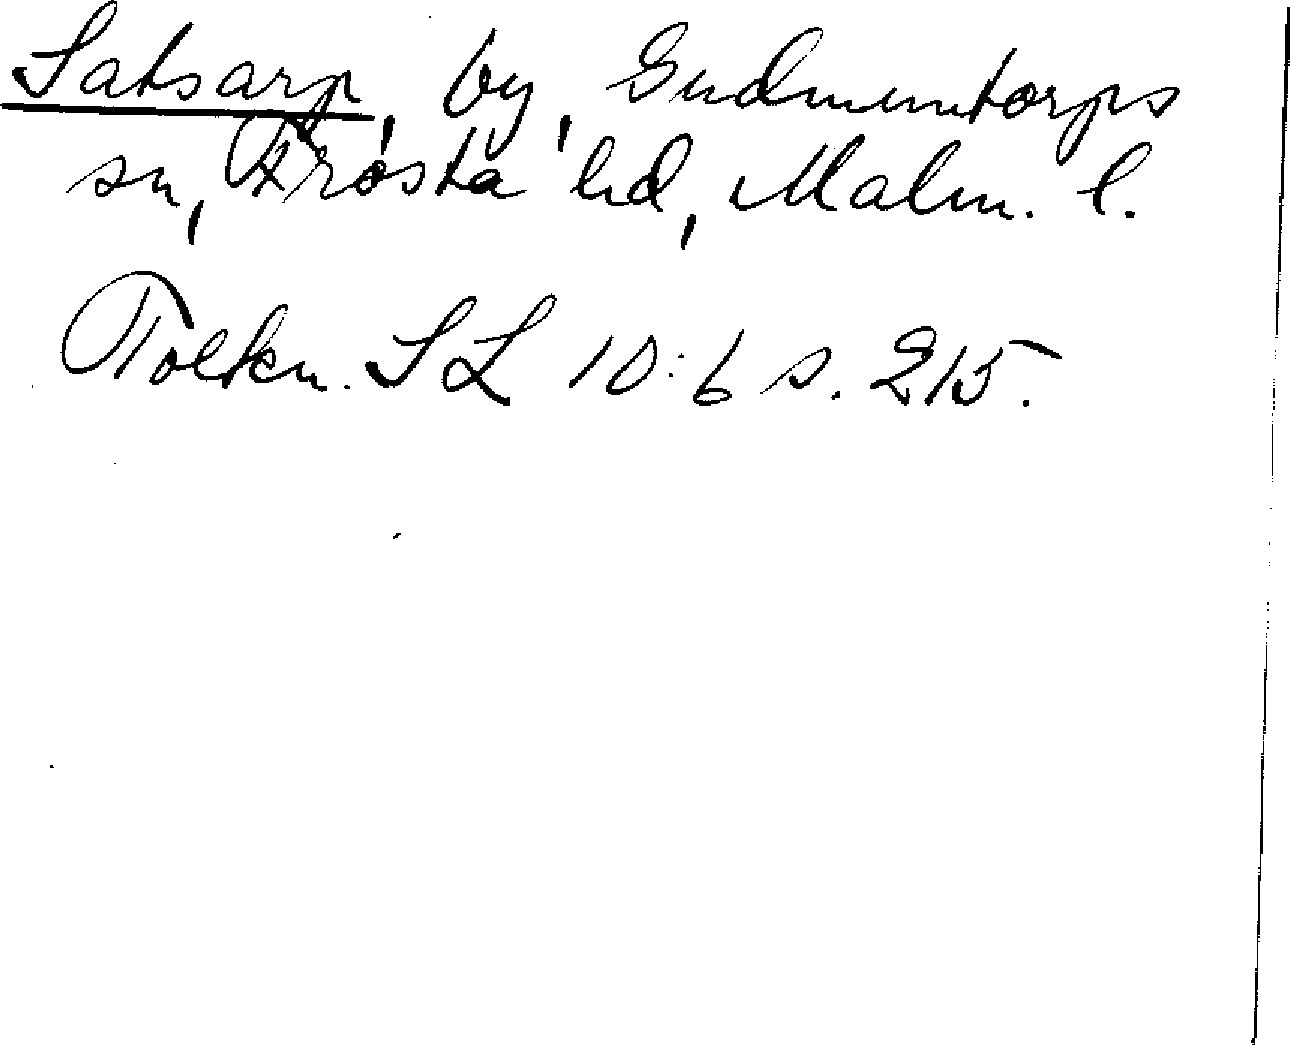 Satsarp, by, Gudmuntorps
sn, Frosta hd, Malm. l.
Tolkn. SL 10:6 s. 215.